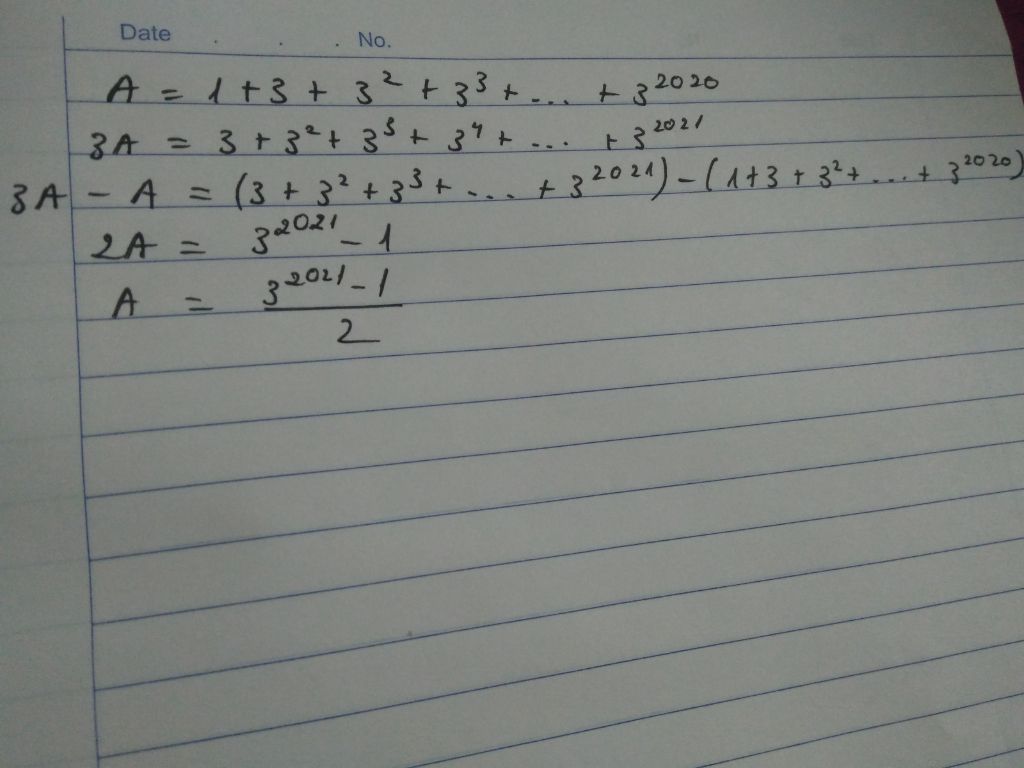 Date . . . No.
A = 1 + 3 + 3² + 3³ + ... + 3²⁰²⁰
3A = 3 + 3² + 3³ + 3⁴ + ... + 3²⁰²¹
3A - A = (3 + 3² + 3³ + .... + 3²⁰²¹) - (1 + 3 + 3² + ... + 3²⁰²⁰)
2A = 3²⁰²¹ - 1
A = 3²⁰²¹ - 1
2